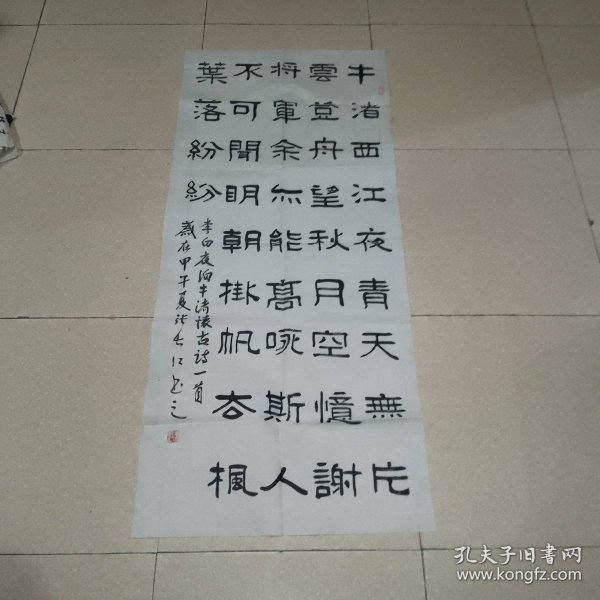 牛渚西江夜青天無片
雲登舟望秋月空憶謝
將軍余亦能高咏斯人
不可聞眀朝掛帆去楓
葉落紛紛
李白夜泊牛渚懷古詩一首
歲在甲午夏江書之
孔夫子旧书网
www.kongfz.com